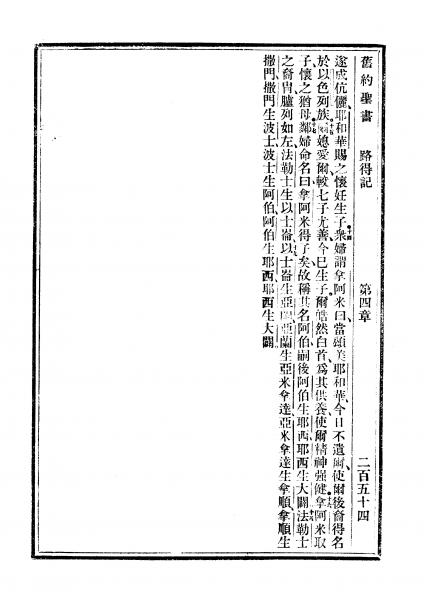 舊約聖書 路得記 第四章 二百五十四
遂成伉儷耶和華賜之懷妊生子衆婦謂拿阿米曰當頌美耶和華今日不遺爾使爾後裔得名
於以色列族媳愛爾較七子尤善今已生子爾皓然白首爲其供養使爾精神强健拿阿米取
子懷之猶母鄰婦命名曰拿阿米得子矣故稱其名阿伯嗣後阿伯生耶西耶西生大闢法勒士
之裔冑臚列如左法勒士生以士崙以士崙生亞蘭亞蘭生亞米拿達亞米拿達生拿順拿順生
撒門撒門生波士波士生阿伯阿伯生耶西耶西生大闢